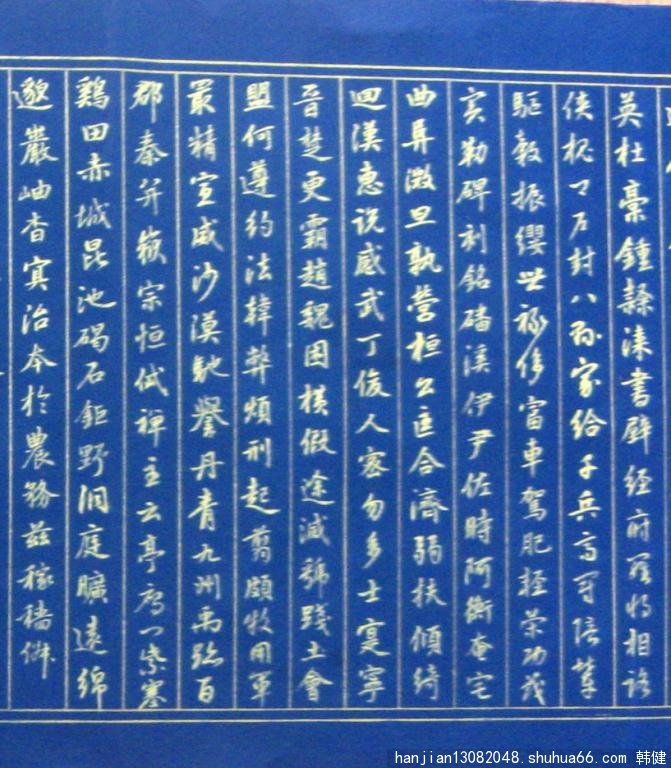 英杜稾鍾隸漆書壁經府羅將相路
俠槐卿户封八縣家給千兵高冠陪輦
驅轂振纓世祿侈富車駕肥輕策功茂
实勒碑刻銘磻溪伊尹佐時阿衡奄宅
曲阜微旦孰營桓公匡合濟弱扶傾綺
迴漢惠说感武丁俊乂密勿多士寔寧
晉楚更霸趙魏困横假途滅虢踐土會
盟何遵約法韓弊煩刑起翦頗牧用軍
最精宣威沙漠馳譽丹青九州禹跡百
郡秦并嶽宗恒岱禪主云亭雁门紫塞
鷄田赤城昆池碣石鉅野洞庭曠遠綿
邈巖岫杳冥治本於農務兹稼穡俶
hanjian13082048.shuhua66.com 韩健